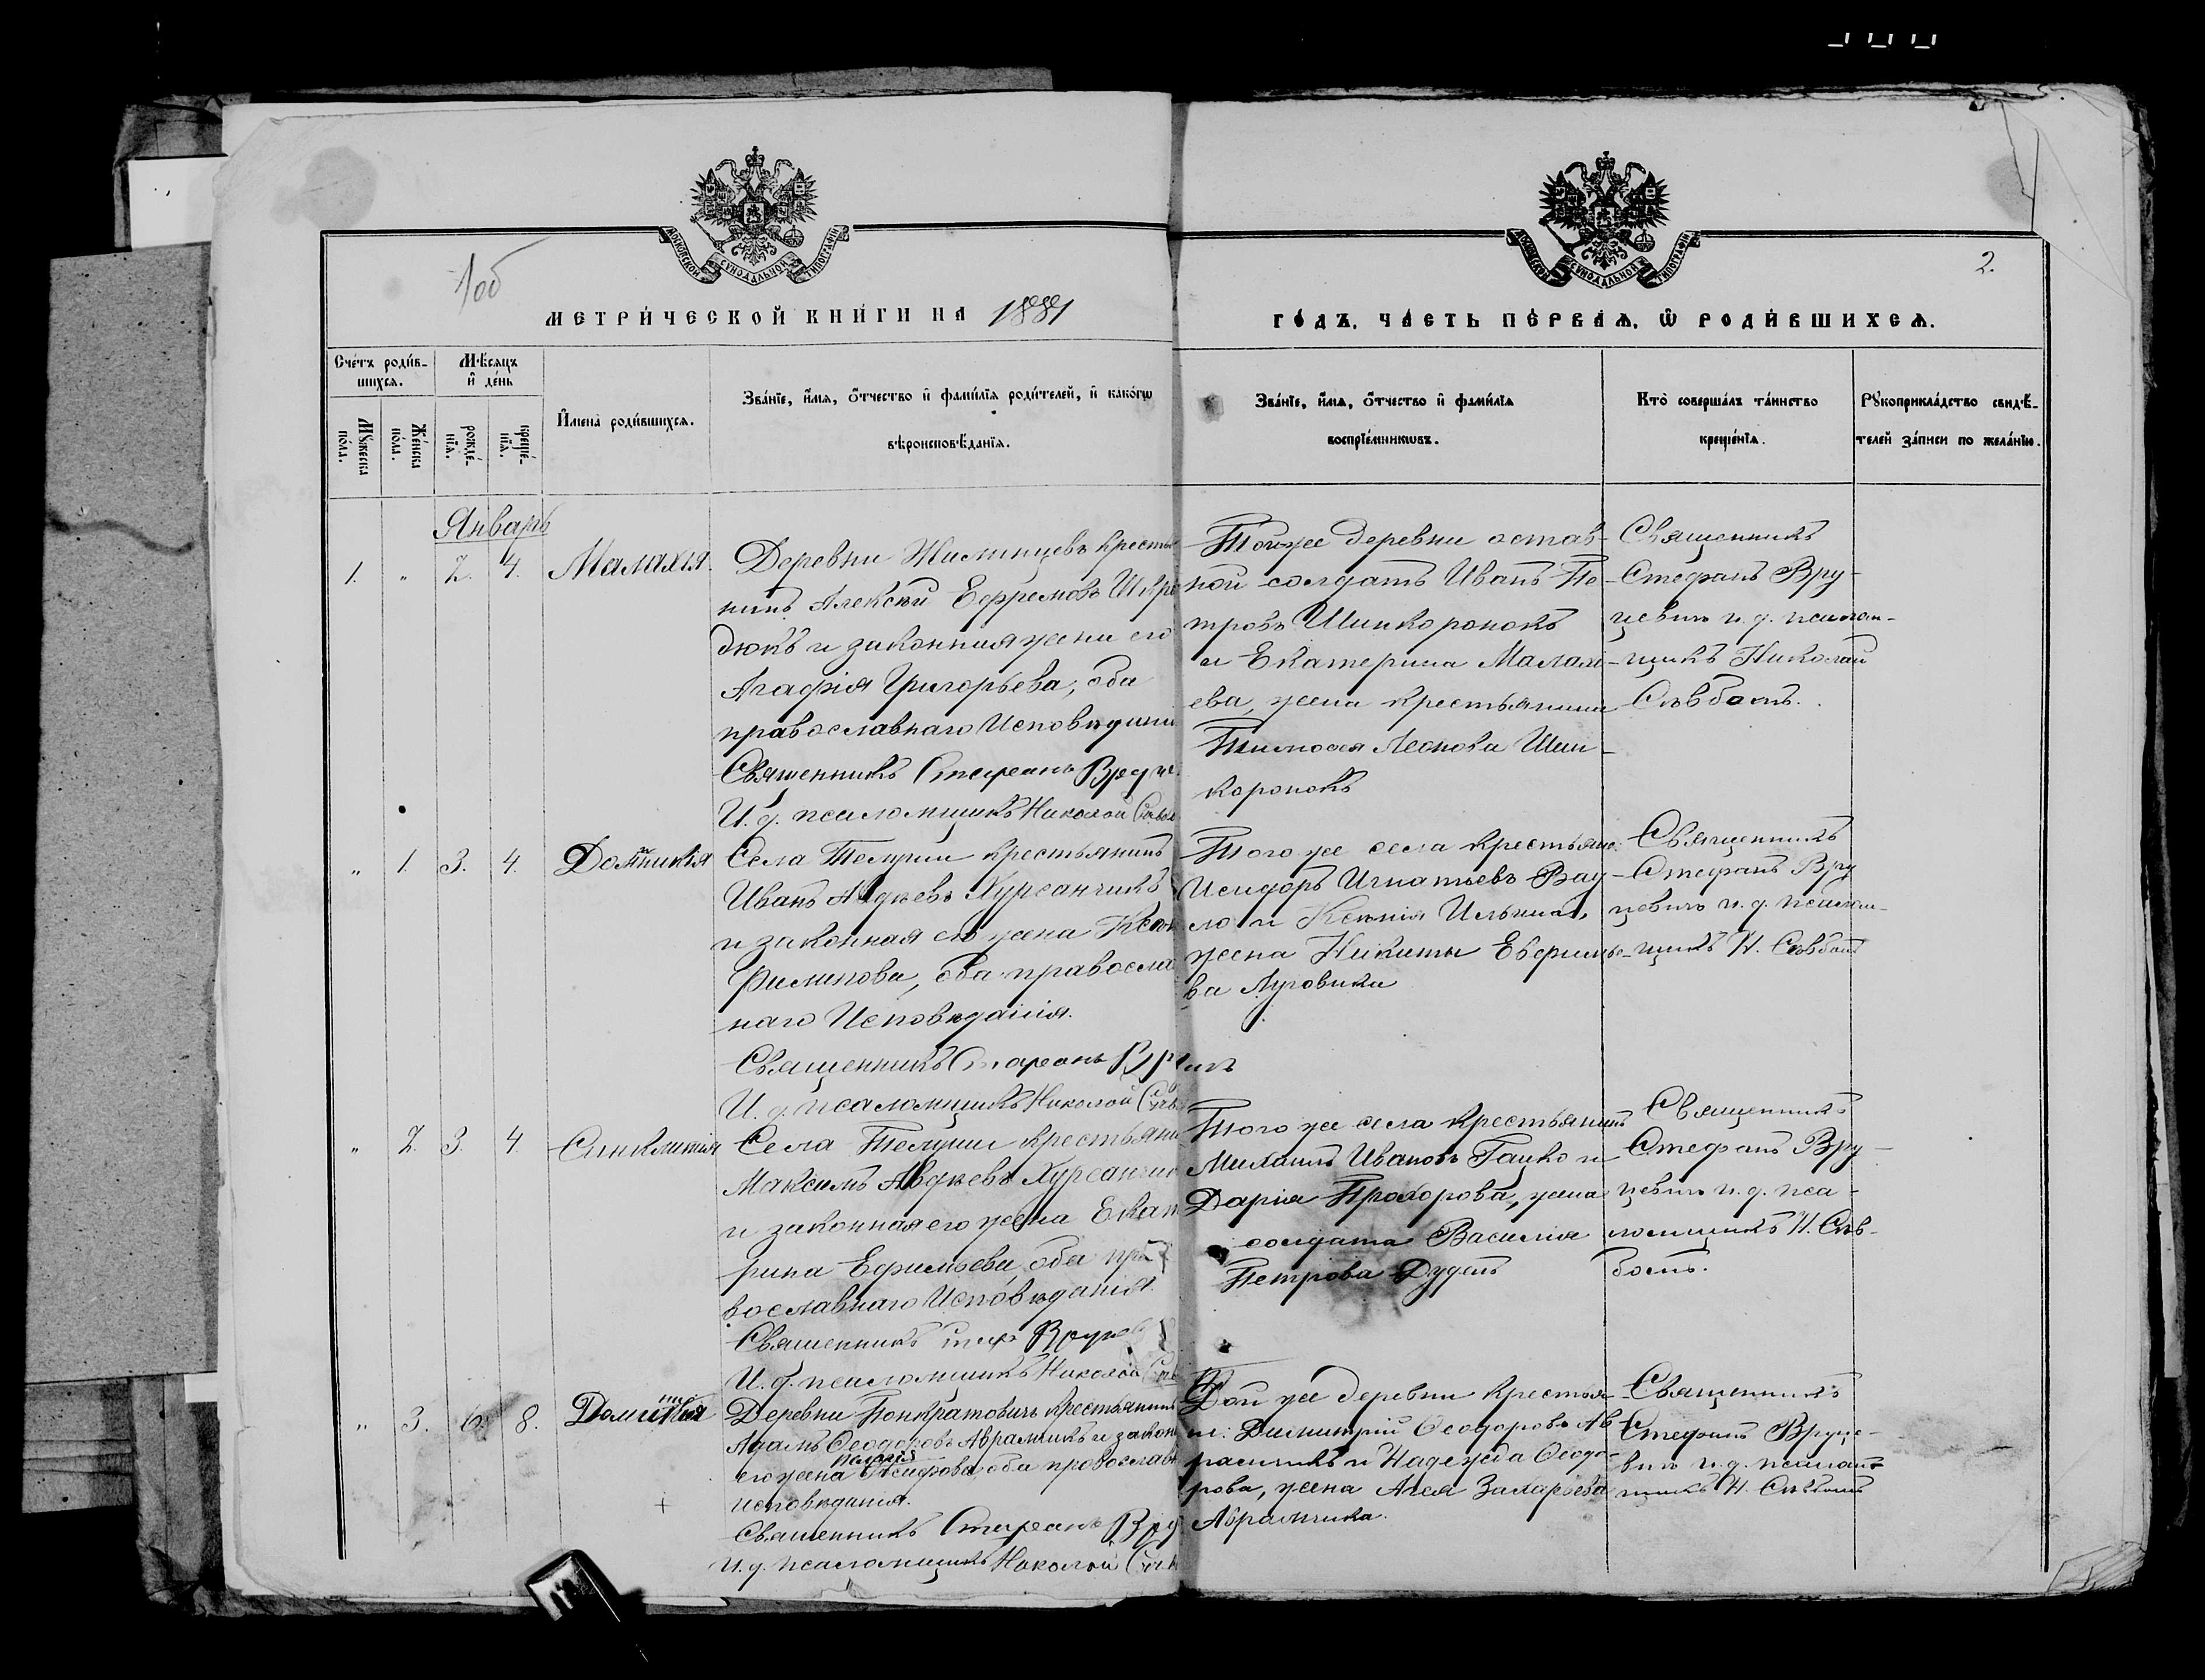 МОСКОВСКОЙ СУНОДАЛЬНОЙ ТИПОГРАФІИ
МОСКОВСКОЙ СУНОДАЛЬНОЙ ТИПОГРАФІИ
1об
2.
МЕТРИ́ЧЕСКОЙ КНИ́ГИ НА 1881
ГО́ДЪ, ЧА́СТЬ ПЕ́РВАЯ, Ѡ РОДИ́ВШИХСЯ.
Сче́тъ роди́в-
шихся.
Мꙋжеска по́ла.
Же́нска по́ла.
Мѣ́сяцъ
и҆ де́нь
рожде́-нїя.
креще́-нїя.
И҆мена̀ роди́вшихся.
Зва́нїе, и҆́мя, ѻ҆́тчество и҆ фами́лїя роди́телей, и҆ како́гѡ
вѣроисповѣ́данїя.
Зва́нїе, и҆́мя, ѻ҆́тчество и҆ фами́лїя
воспрїе́мникѡвъ.
Кто̀ соверша́лъ та́инство
креще́нїя.
Рꙋкоприкла́дство свидѣ́-
телей за́писи по жела́нїю.
Январь
1. " 2. 4. Малахія.
Деревни
нинъ Алексѣй Ефремовъ
дюкъ и законная жена его
Агафія Григорьева, оба
православнаго Исповѣдани
Священникъ Стефанъ Вруц
И. д. псаломщикъ Николай
Той же деревни остав-
ной солдатъ Иванъ Пе-
тровъ Шинкоронокъ
и Екатерина Малахі-
ева, жена крестьянина
Тимофея Леонова Шин-
коронокъ
Священникъ
Стефанъ Вру-
цевичъ и. д. псалом-
щикъ Николай
" 1. 3. 4. Домникія
Села Телуши крестьянинъ
Иванъ Авдѣевъ Хурсанчикъ
и законная его жена Ксен
Филипова, оба правосла
наго Исповѣданія.
Священникъ Стефанъ
И. д. псаломщикъ Николай
Того же села крестьян.
Исидоръ Игнатьевъ
ло и Ксенія Ильина,
жена Никиты
ва Луговика
Священникъ
Стефанъ Вру
цевичъ и. д. псалом-
щикъ Н.
" 2. 3. 4. Синклитія
Села Телуши крестьяни
Максимъ Авдѣевъ Хурсанчик
и законная его жена Екат
рина Ефимьева, оба пра
вославнаго Исповѣданія.
Священникъ
И. д. псаломщикъ Николай
Того же села крестьянинъ
Михаилъ Ивановъ Гацко и
Дарія Прохорова, жена
солдата Василія
Петрова Дудель
Священникъ
Стефанъ Вру-
цевичъ и. д. пса-
ломщикъ Н.
" 3. 6. 8.
Деревни Понкратовичъ крестьянинъ
Адамъ Ѳеодоровъ Абрамчикъ и закон
его жена оба православн
исповѣданія.
+
Священникъ Стефанъ Вру
И. д. псаломщикъ Николай
Той же деревни крестья-
н. Димитрій Ѳеодоровъ Аб
рамчикъ и Надежда Ѳеодо-
рова, жена Агея Захарьева
Абрамчика.
Священникъ
Стефанъ Вруце-
вичъ и. д. псалом-
щикъ Н.